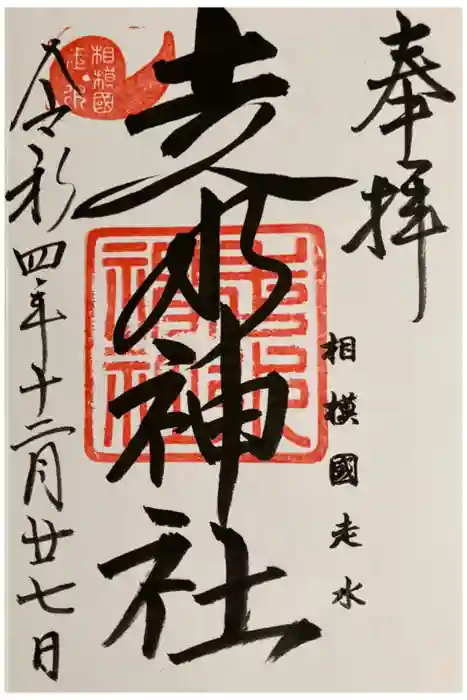 奉拝
相模國走水
走水神社
走水神社
相模國
走水
令和四年十二月廿七日